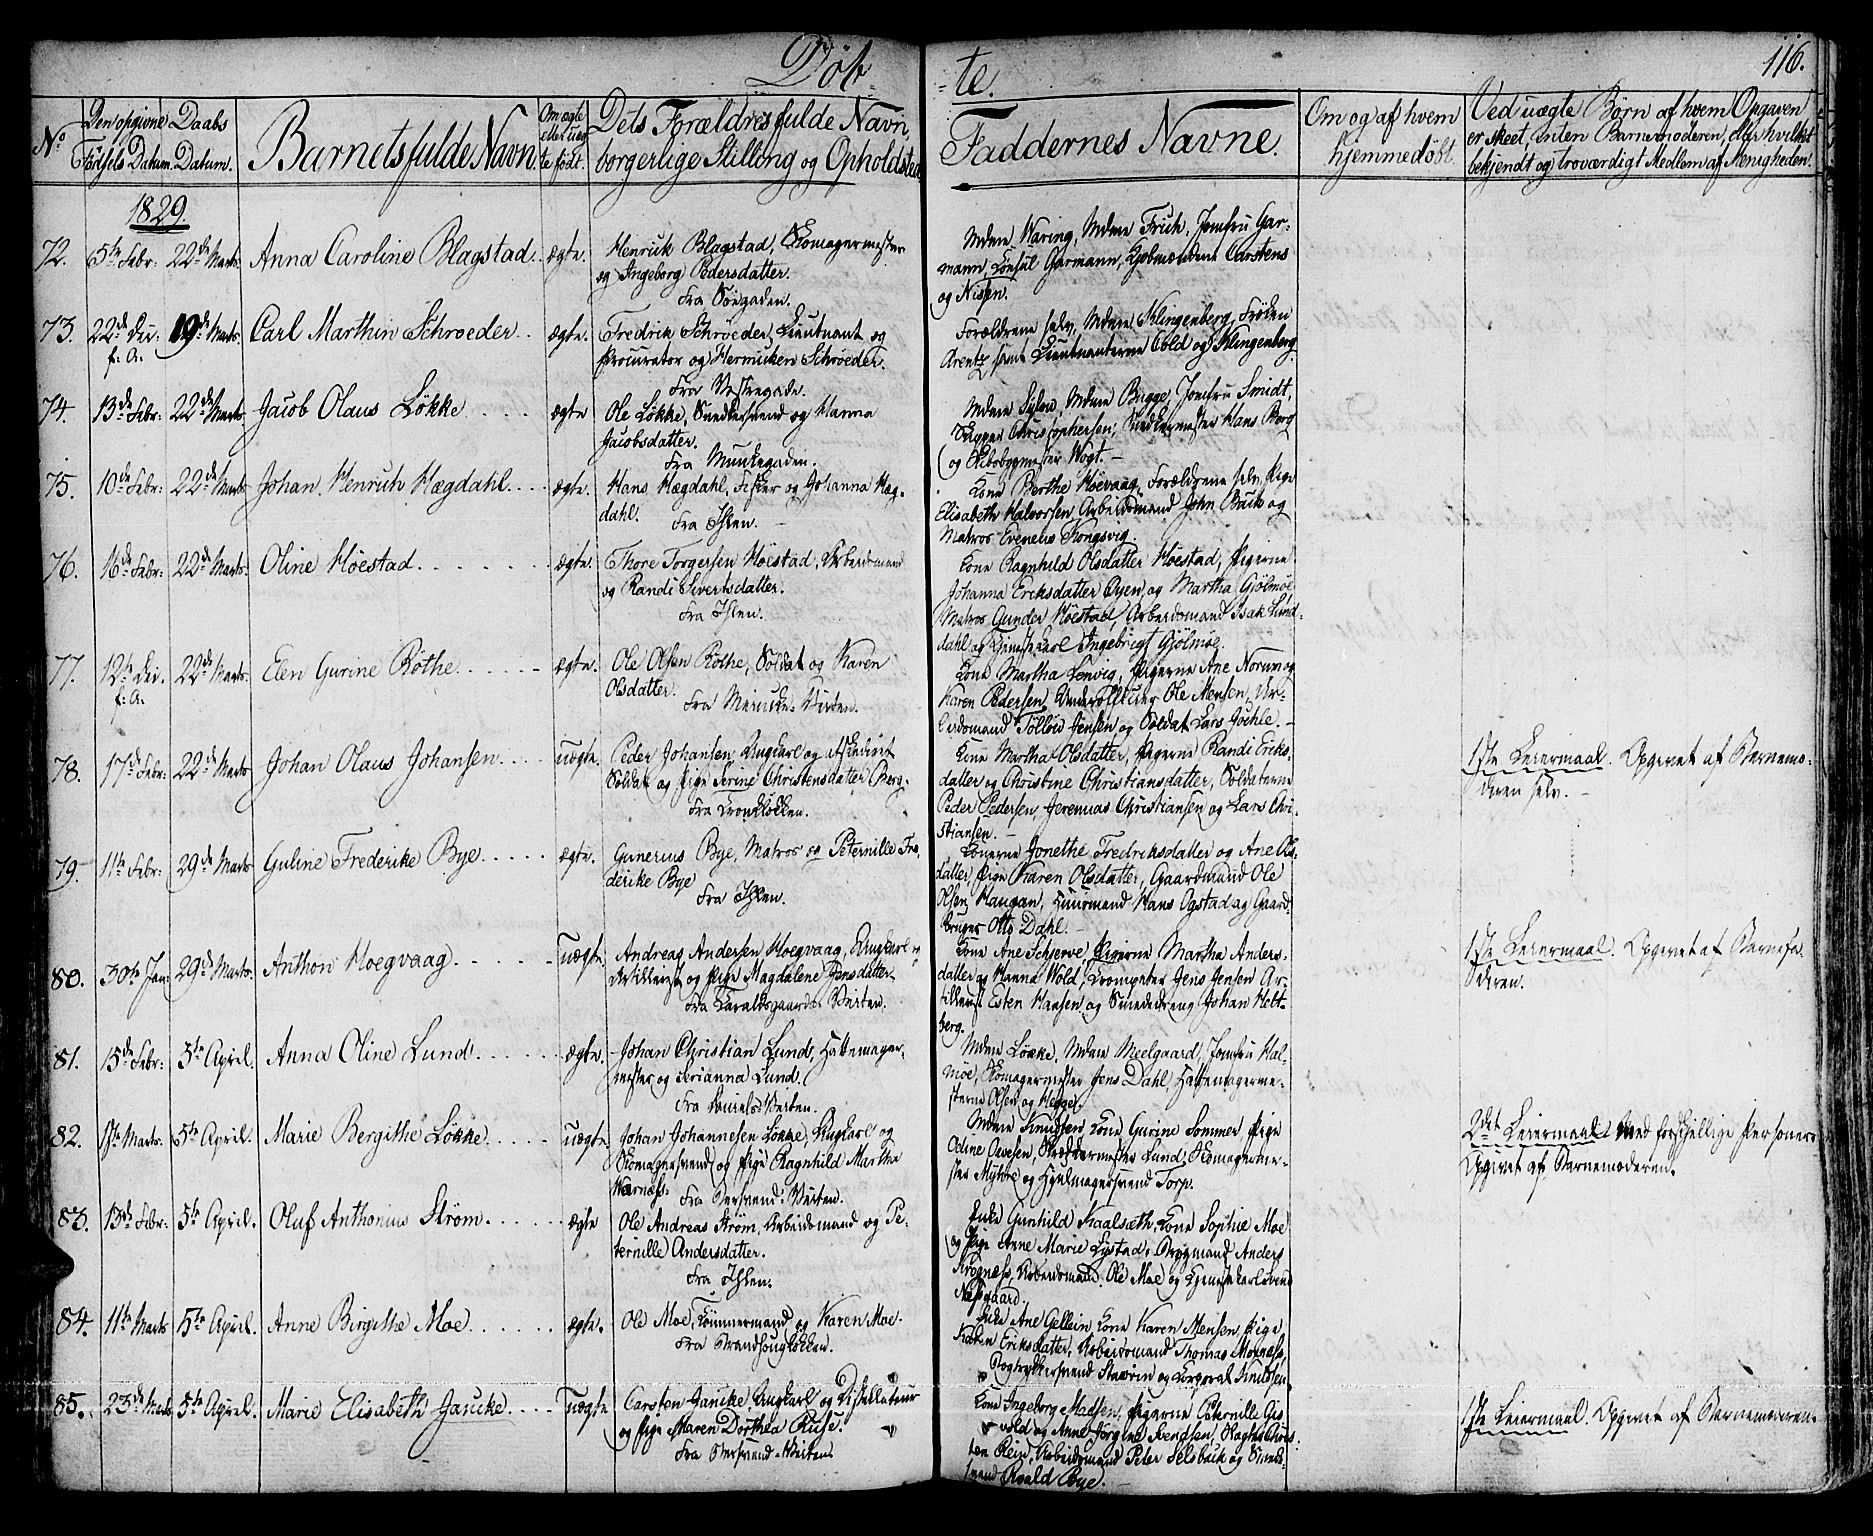 Døb
te.
116.
No
Den opgivne Fødsels Datum.
Daabs Datum.
Barnets fulde Navn.
Om ægte eller uægte født.
Dets Forældres fulde Navn, borgerlige Stilling og Opholdsted
Faddernes Navne.
Om og af hvem hjemmedøbt.
Ved uægte Børn af hvem Opgaven
er skeet, enten Barnemoderen, eller hvilket
bekjendt og troværdigt Medlem af Menigheden.
1829.
72. 5te Febr: 22de Marts. Anna Caroline Blagstad. ægte.
Henrick Blagstad, Skomagermester
og Ingeborg Pedersdatter.
Fra
Mdme Waring, Mdme Frich, Jomfru Gar-
mann, Consul Garmann, Kjøbmændene Carstens
og Nissen.
73. 22de Dec: f: A: 19de Marts. Carl Marthin Schroeder. ægte.
Fredrik Schröeder, Lieutnant og
Procurator og Hermicken Schroeder.
Forældrene selv, Mdme Klingenberg, Frøken
Arentz samt Lieutnanterne Cold og Klingenberg.
74. 13de Febr: 22de Marts. Jacob Olaus Løkke. ægte.
Ole Løkke, Snedkersvend og Hanna
Jacobsdatter.
Fra Munkegaden.
Mdme Bugge, Jomfru Smidt,
Christophersen, Snedkermester Hans Berg
og Skibsbygmester Vogt.
75. 10de Febr: 22de Marts. Johan Henrich Hægdahl. ægte.
Hans Hægdahl, Fisker og Johanna Hæg-
dahl.
Fra Ihlen.
Kone Berthe Høevaag, Forældrene selv, Pige
Elisabeth Halvorsen, Arbeidsmand John Brück og
Matros Evenelis Kongsvig.
76. 16de Febr: 22de Marts. Oline Høestad. ægte.
Thore Torgersen Høestad, Arbeidsmand
og Randi Sivertsdatter.
Fra Ihlen.
Kone Ragnhild Olsdatter Høestad, Pigerne
Johanna Ericksdatter Øyen og Martha Gjølmøe
Matros Gunder Høestad, Arbeidsmand Isak Lund-
dahl og Ingebrigt Gjølmøe.
77. 12te Dec. f: A: 22de Marts. Elen Gurine Röthe. ægte.
Ole Olsen Röthe, Soldat og Karen
Olsdatter.
Kone Martha Lenvig, Pigerne Ane Norum og
Karen Pedersen, Underofficeer Ole Mensen, Ar-
beidsmand Jensen og Soldat Lars Jøehle.
78. 17de Febr: 22de Marts. Johan Olaus Johansen. uægte.
Peder Johansen, Ungkarl og afskediget
Soldat og Pige Serine Christensdatter Berg.
Fra
Kone Martha Olsdatter, Pigerne Randi Ericks-
datter og Christine Christiansdatter, Soldaterne
Peder Pedersen, Jeremias Christiansen og Lars Chri-
stiansen.
1ste Leiermaal. Opgivet af Barnemo-
deren selv.
79. 11te Febr: 29de Marts. Guline Frederike Bye. ægte.
Gunerius Bye, Matros og Peternille Fre-
derike Bye
Fra Ihlen.
Konerne Jonethe Fredriksdatter og Ane Ols-
datter, Pige Karen Olsdatter, Gaardmand Ole
Olsen Haugan, Huusmand Hans Ogstad og Gaard-
bruger Otto Dahl.
80. 30te Jan: 29de Marts. Anthon Hoegvaag. uægte
Andreas Andersen Hoegvaag, Ungkarl og
Artillerist og Pige Magdalene Jensdatter.
Kone Ane Schjerve, Pigerne Martha Anders-
datter og Hanna Wold, Trompeter Jens Jensen Ar-
tillerist Esten Hansen og Smededreng Johan Helt-
berg.
1ste Leiermaal. Opgivet af Barnefa-
deren.
81. 15de Febr: 5te April. Anna Oline Lund. ægte.
Johan Christian Lund, Hattemager-
mester og Serianna Lund.
Mdme Løkke, Mdme Meelgaard, Jomfru Hal-
moe, Skomagermester Jens Dahl, Hattemagerme-
sterne Olsen og Hegge.
82. 1ste Marts 5te April. Marie Bergithe Løkke. uægte
Johan Johannesen Løkke, Ungkarl og
Skomagersvend og Pige Ragnhild Martha
Wærnæss.
Mdme Knudsen, Kone Gurine Sommer, Pige
Odine Owesen, Skræddermester Lund, Skomagerme-
ster Myhre og Hjulmagersvend Torp.
2det Leiermaal med forskjellige Personer.
Opgivet af Barnemoderen.
83. 13de Febr: 5te April. Oluf Anthonius Strøm. ægte
Ole Andreas Strøm, Arbeidsmand og Pe-
ternille Andersdatter.
Fra Ihlen.
Enke Gunhild Kaalsæth, Kone Sophie Moe
og Pige Anne Marie Lystad, Brygmand Anders
Krognæss, Arbeidsmand Ole Moe og
84. 11te Marts 5te April. Anne Birgithe Moe. ægte.
Ole Moe, Tømmermand og Karen Moe.
Fra
Enke Ane Gellein, Kone Karen Mensen, Pige
Karen Ericksdatter, Arbeidsmand Thomas Moxness,
Bogtrykkersvend og Corporal Knudsen.
85. 23de Marts 5te April. Marie Elisabeth Janicke. uægte.
Carsten Janicke, Ungkarl og Distillateur
og Pige Maren Dorthea Ruse.
Kone Ingeborg Madsen, Pigerne Peternille Gis-
vold og Anne Jørgine Svendsen,
Rein, Arbeidsmand Peter Selsbak og Smede-
svend Roald Bye.
1ste Leiermaal. Opgivet af Barnemoderen.